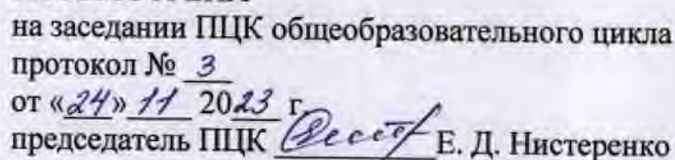 на заседании ПЦК общеобразовательного цикла
протокол № 3
от «24» 11 2023 г.
председатель ПЦК Е. Д. Нистеренко